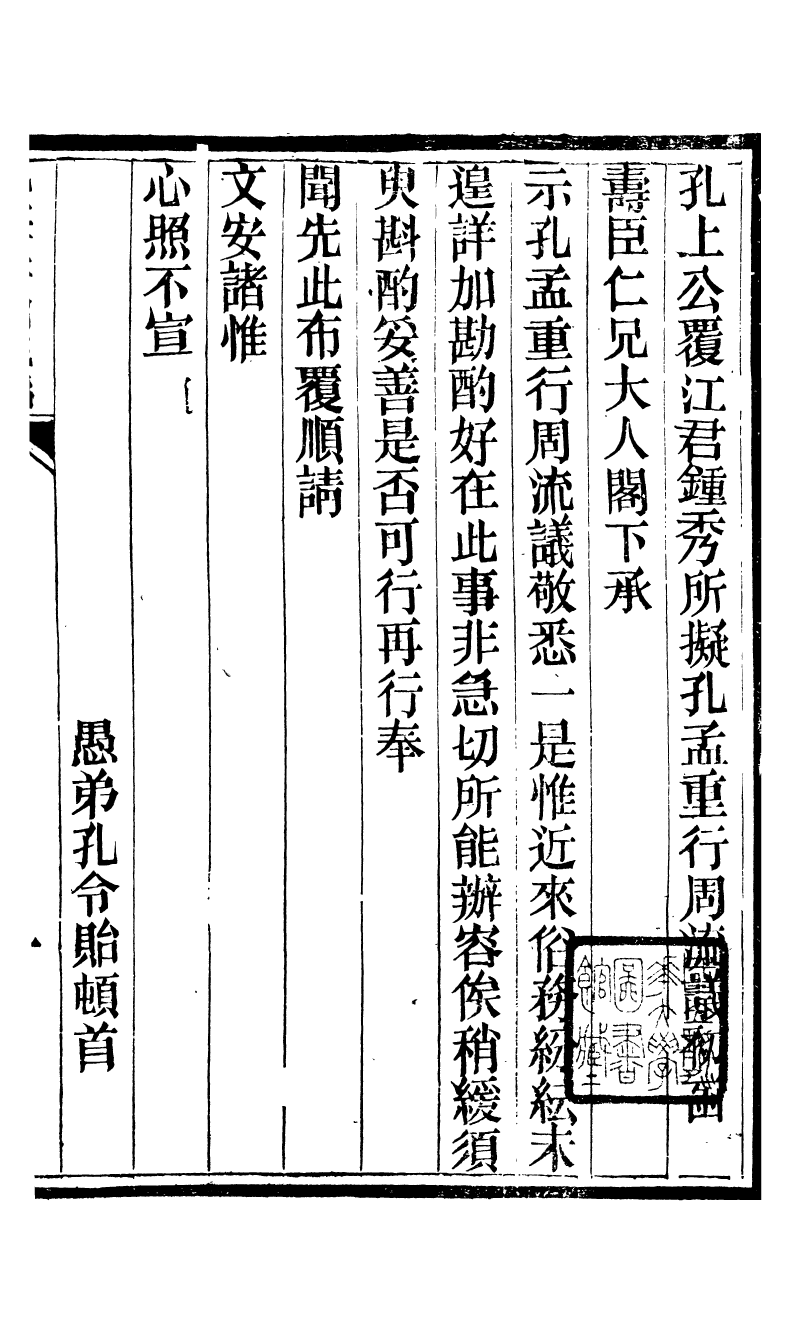 孔上公覆江君鍾秀所擬孔孟重行周流議
壽臣仁兄大人閣下承
示孔孟重行周流議敬悉一是惟近來俗務紛紜未
遑詳加勘酌好在此事非急切所能辦容俟稍緩須
臾斟酌妥善是否可行再行奉
聞先此布覆順請
文安諸惟
心照不宣
愚弟孔令貽頓首
大學
圖書
館藏